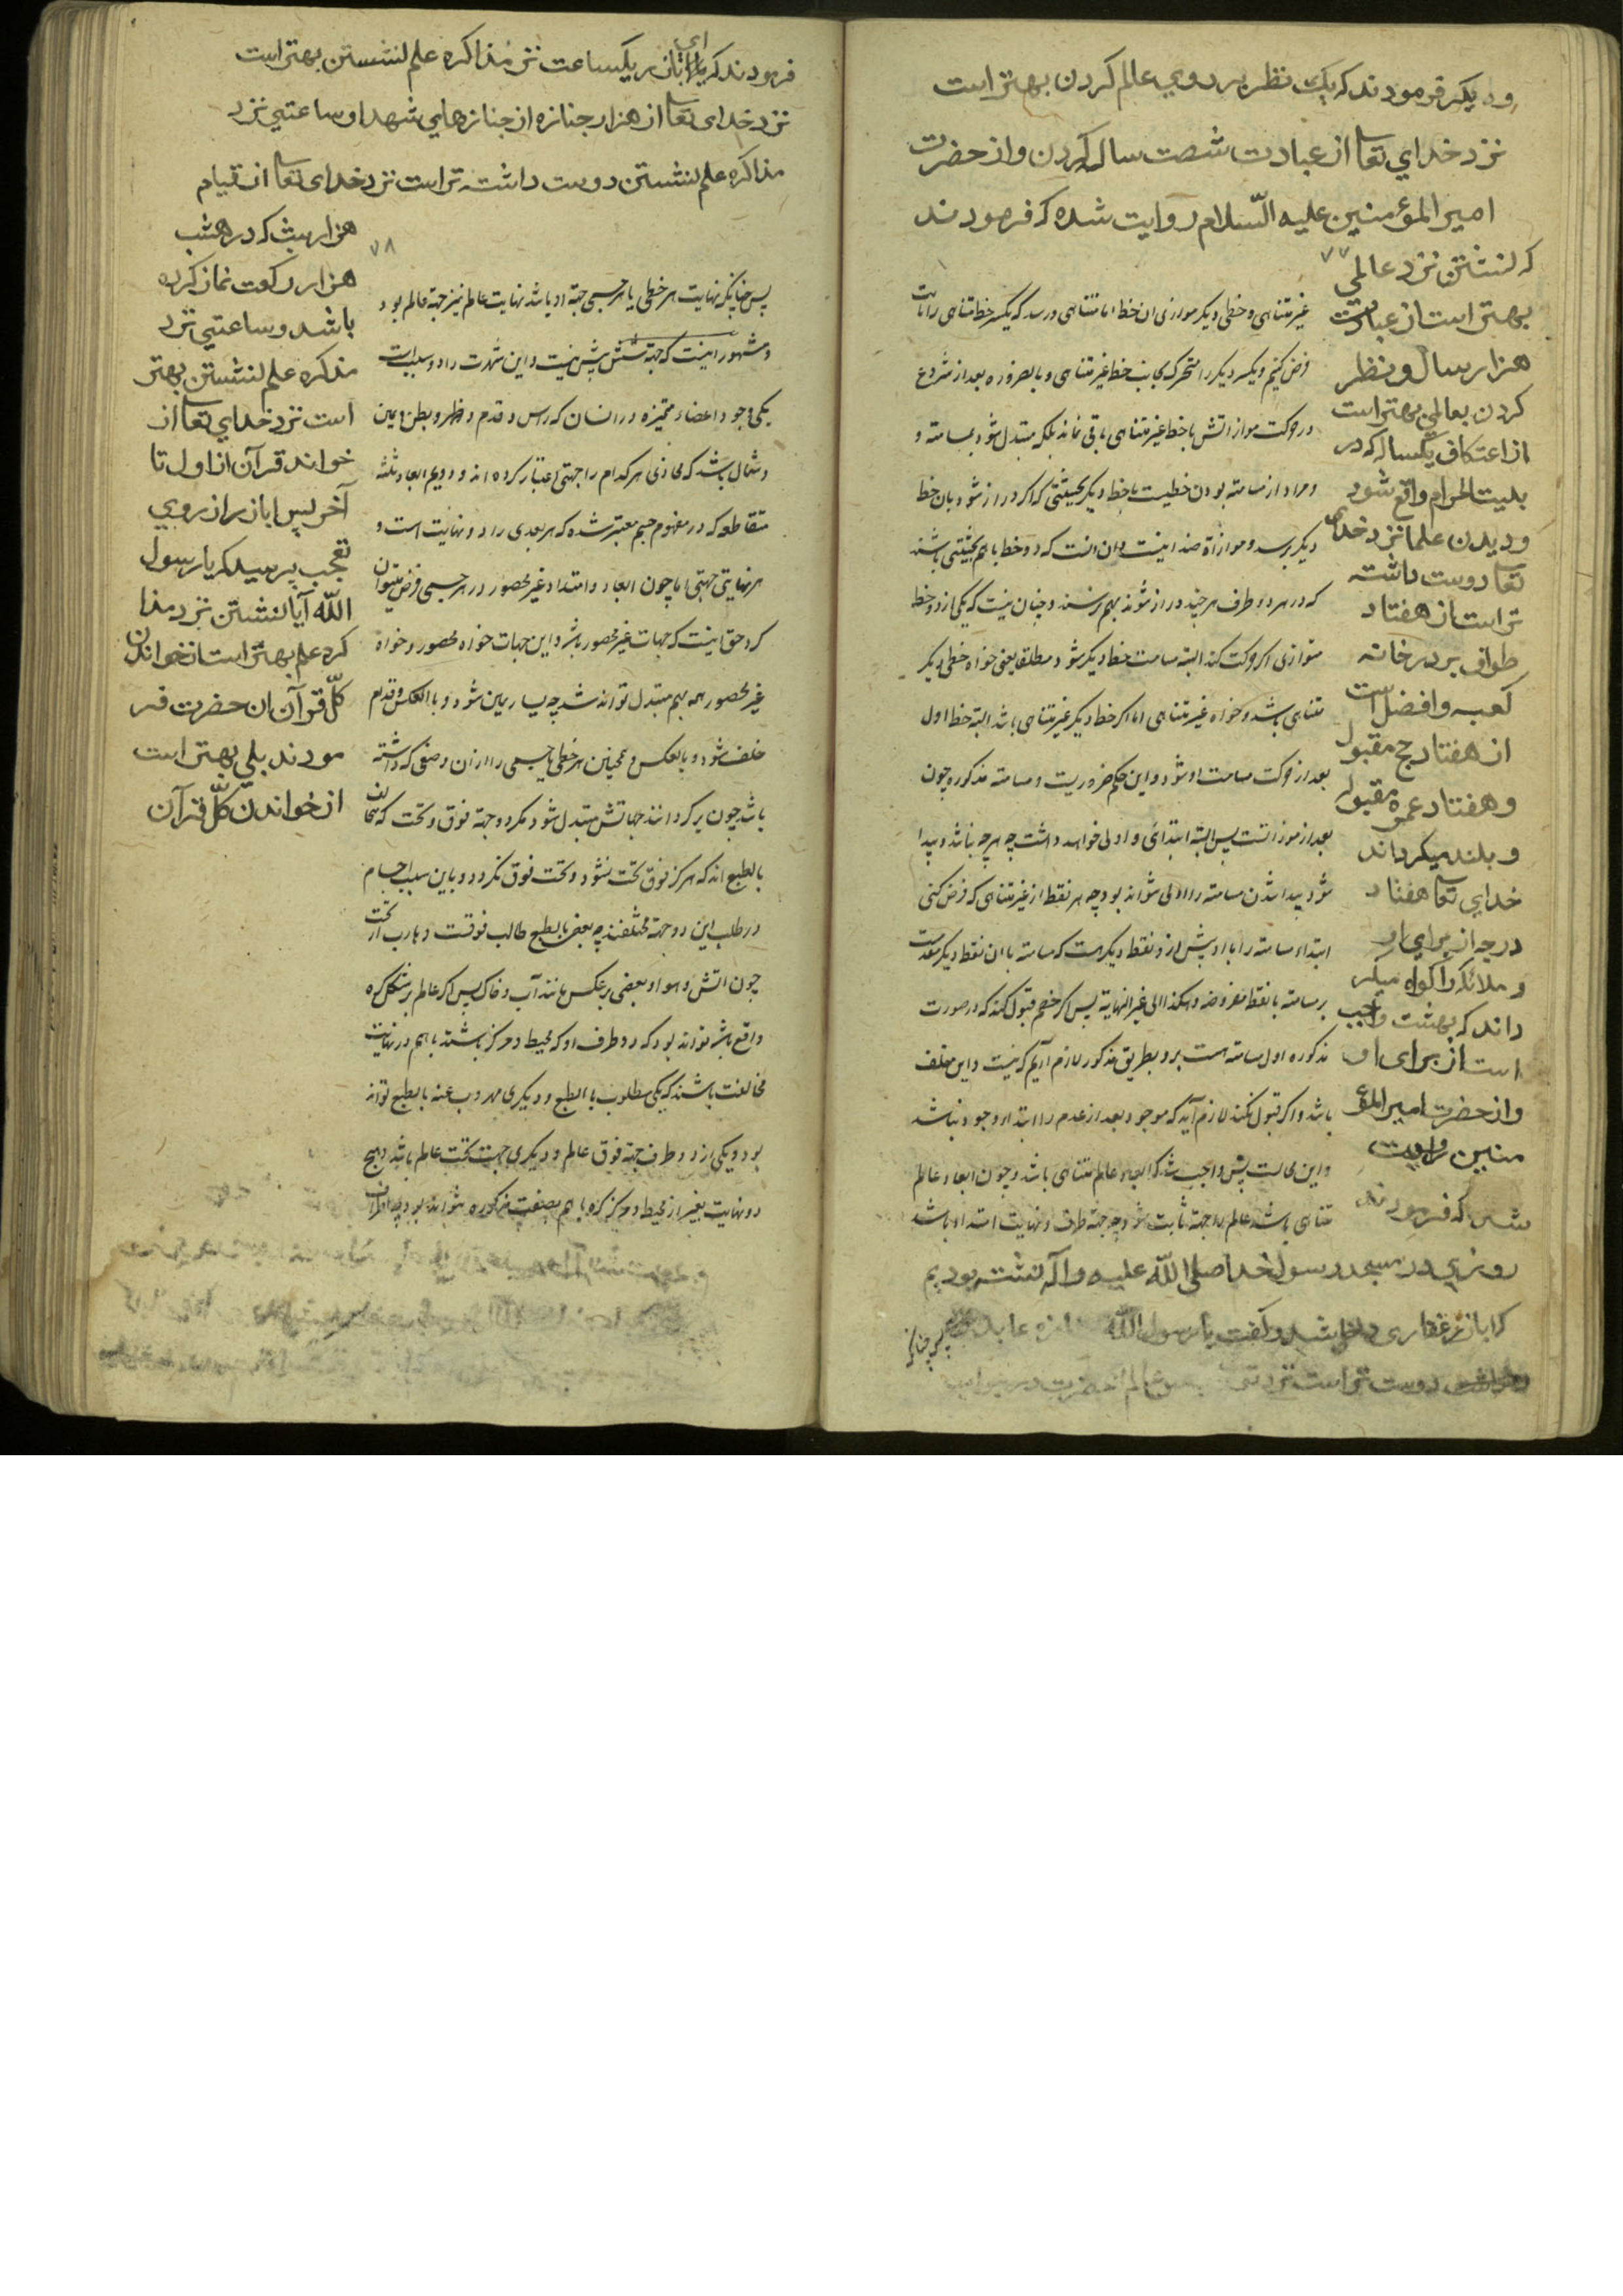 و دیکر فرمودند که یک نظر بر روي عالم کردن بهتر است
نزد خداي تعا از عبادت شصت ساله کردن و از حضرت
امیر المؤمنین علیه السّلام روایت شده که فرمودند
که نشستن نزد عالمي
بهتر است از عبادت
هزار سال و نظر
کردن بعالمي بهتر است
از اعتکاف یکساله که در
بیت الحرام واقع شود
و دیدن علما نزد خداي
تعا دوست داشته
تر است از هفتاد
طواف بر در خانه
کعبه و افضل است
از هفتاد حج مقبول
و هفتاد عمره مقبوله
و بلند میکرداند
خداي تعا هفتاد
درجه از براي او
و ملائکه را کواه میکر
داند که بهشت واجب
است از براي او
و از حضرت امیر المؤ
منین روایت
شده که فرمودند
روزي در مسجد رسول خدا صلی الله علیه و آله نشسته بودیم
که اباذر غفاری داخل شد و کفت یا رسول الله
دوست تر است نزد
۷۷
غیر متناهی و خطی دیکر موازی ان خط اما متناهی و رسد که یکسر خط متناهی را ثابت
فرض کنیم و یکسر دیکر را متحرک بجانب خط غیر متناهی و بالضروره بعد از شروع
در حرکت موازاتش با خط غیر متناهی باقی نماند بلکه متبدل شود بمسامته و
و مراد از مسامته بودن خطیست با خط دیکر بحیثیتی که اکر دراز شود بان خط
دیکر برسد و موازاة ضد اینست و ان انست که دو خط با هم بحیثیتی باشند
که در هر دو طرف هر چند دراز شوند بهم نرسند و چنان نیست که یکی از دو خط
متوازی اکر حرکت کند البته مسامت خط دیکر شود مطلقا یعنی خواه خط دیکر
متناهی باشد و خواه غیر متناهی اما اکر خط دیکر غیر متناهی باشد البته خط اول
بعد از حرکت مسامت او شود و این حکم ضروریست و مسامته مذکوره چون
بعد از موازاتست پس البته ابتدائی و اولی خواهد داشت چه هر چه نباشد و پیدا
شود پیدا شدن مسامته را اولی نتواند بود چه هر نقطه از غیر متناهی که فرض کنی
ابتداء مسامته را با او پیش از و نقطه دیکر هست که مسامته با ان نقطه دیکر مقدمست
بر مسامته با نقطه مفروضه و هکذا الی غیر النهایة پس اکر خصم قبول کند که در صورت
مذکوره اول مسامته هست برو بطریق مذکور لازم آریم که نیست و این خلف
باشد و اکر قبول نکند لازم آید که موجود بعد از عدم را ابتداء وجود نباشد
و این محالست پس واجب شد که ابعاد عالم متناهی باشد و چون ابعاد عالم
متناهی باشد عالم را جهة ثابت شود چه جهة طرف و نهایت امتداد باشد
فرمودند که یا اباذر یکساعت نزد مذاکره علم نشستن بهتر است
نزد خدای تعا از هزار جنازه از جنازهاي شهدا و ساعتي نزد
مذاکره علم نشستن دوست داشته تر است نزد خدای تعا از قیام
هزار شب که در هر شب
هزار رکعت نماز کرده
باشد و ساعتي نزد
مذکره علم نشستن بهتر
است نزد خداي تعا از
خواند قرآن از اول تا
آخر پس اباذر از روي
تعجب پرسید که یا رسول
الله آیا نشستن نزد مذا
کره علم بهتر است از خواندن
کلّ قرآن ان حضرت فر
مودند بلي بهتر است
از خواندن کلّ قرآن
۷۸
پس چنانکه نهایت هر خطی یا هر جسمی جهة او باشد نهایت عالم نیز جهة عالم بود
و مشهور اینست که جهة شش بیش نیست و این شهرت را دو سببست
یکی وجود اعضاء متمیزه در انسان که راس و قدم و ظهر و بطن و یمین
و شمال باشد که محاذی هر کدام را جهتی اعتبار کرده اند و دویم ابعاد ثلثه
متقاطعه که در مفهوم جسم معتبر شده که هر بعدی را دو نهایت است و
هر نهایتی جهتی اما چون ابعاد و امتداد غیر محصور در هر جسمی فرض میتوان
کرد حق اینست که جهات غیر محصور باشد و این جهات خواه محصور و خواه
غیر محصور همه بهم متبدل توانند شد چه یسار یمین شود و بالعکس و قدام
خلف شود و بالعکس و همچنین هر خطی یا جسمی را از ان وضعی که داشته
باشد چون بر کردانند جهاتش متبدل شود مکر دو جهة فوق و تحت که متخالف
بالطبع اند که هرکز فوق تحت نشود و تحت فوق نکردد و باین سبب اجسام
در طلب این دو جهة مختلفند چه بعضی بالطبع طالب فوقست و هارب از تحت
چون اتش و هوا و بعضی بر عکس مانند آب و خاک پس اکر عالم بر شکل کره
واقع باشد تواند بود که دو طرف او که محیط و مرکز باشند با هم در نهایت
مخالفت باشند که یکی مطلوب بالطبع و دیکری مهروب عنه بالطبع تواند
بود و یکی از دو طرف جهة فوق عالم و دیکری جهت تحت عالم باشد و هیچ
دو نهایت بغیر از محیط و مرکز کره با هم بصفت مذکوره نتواند بود